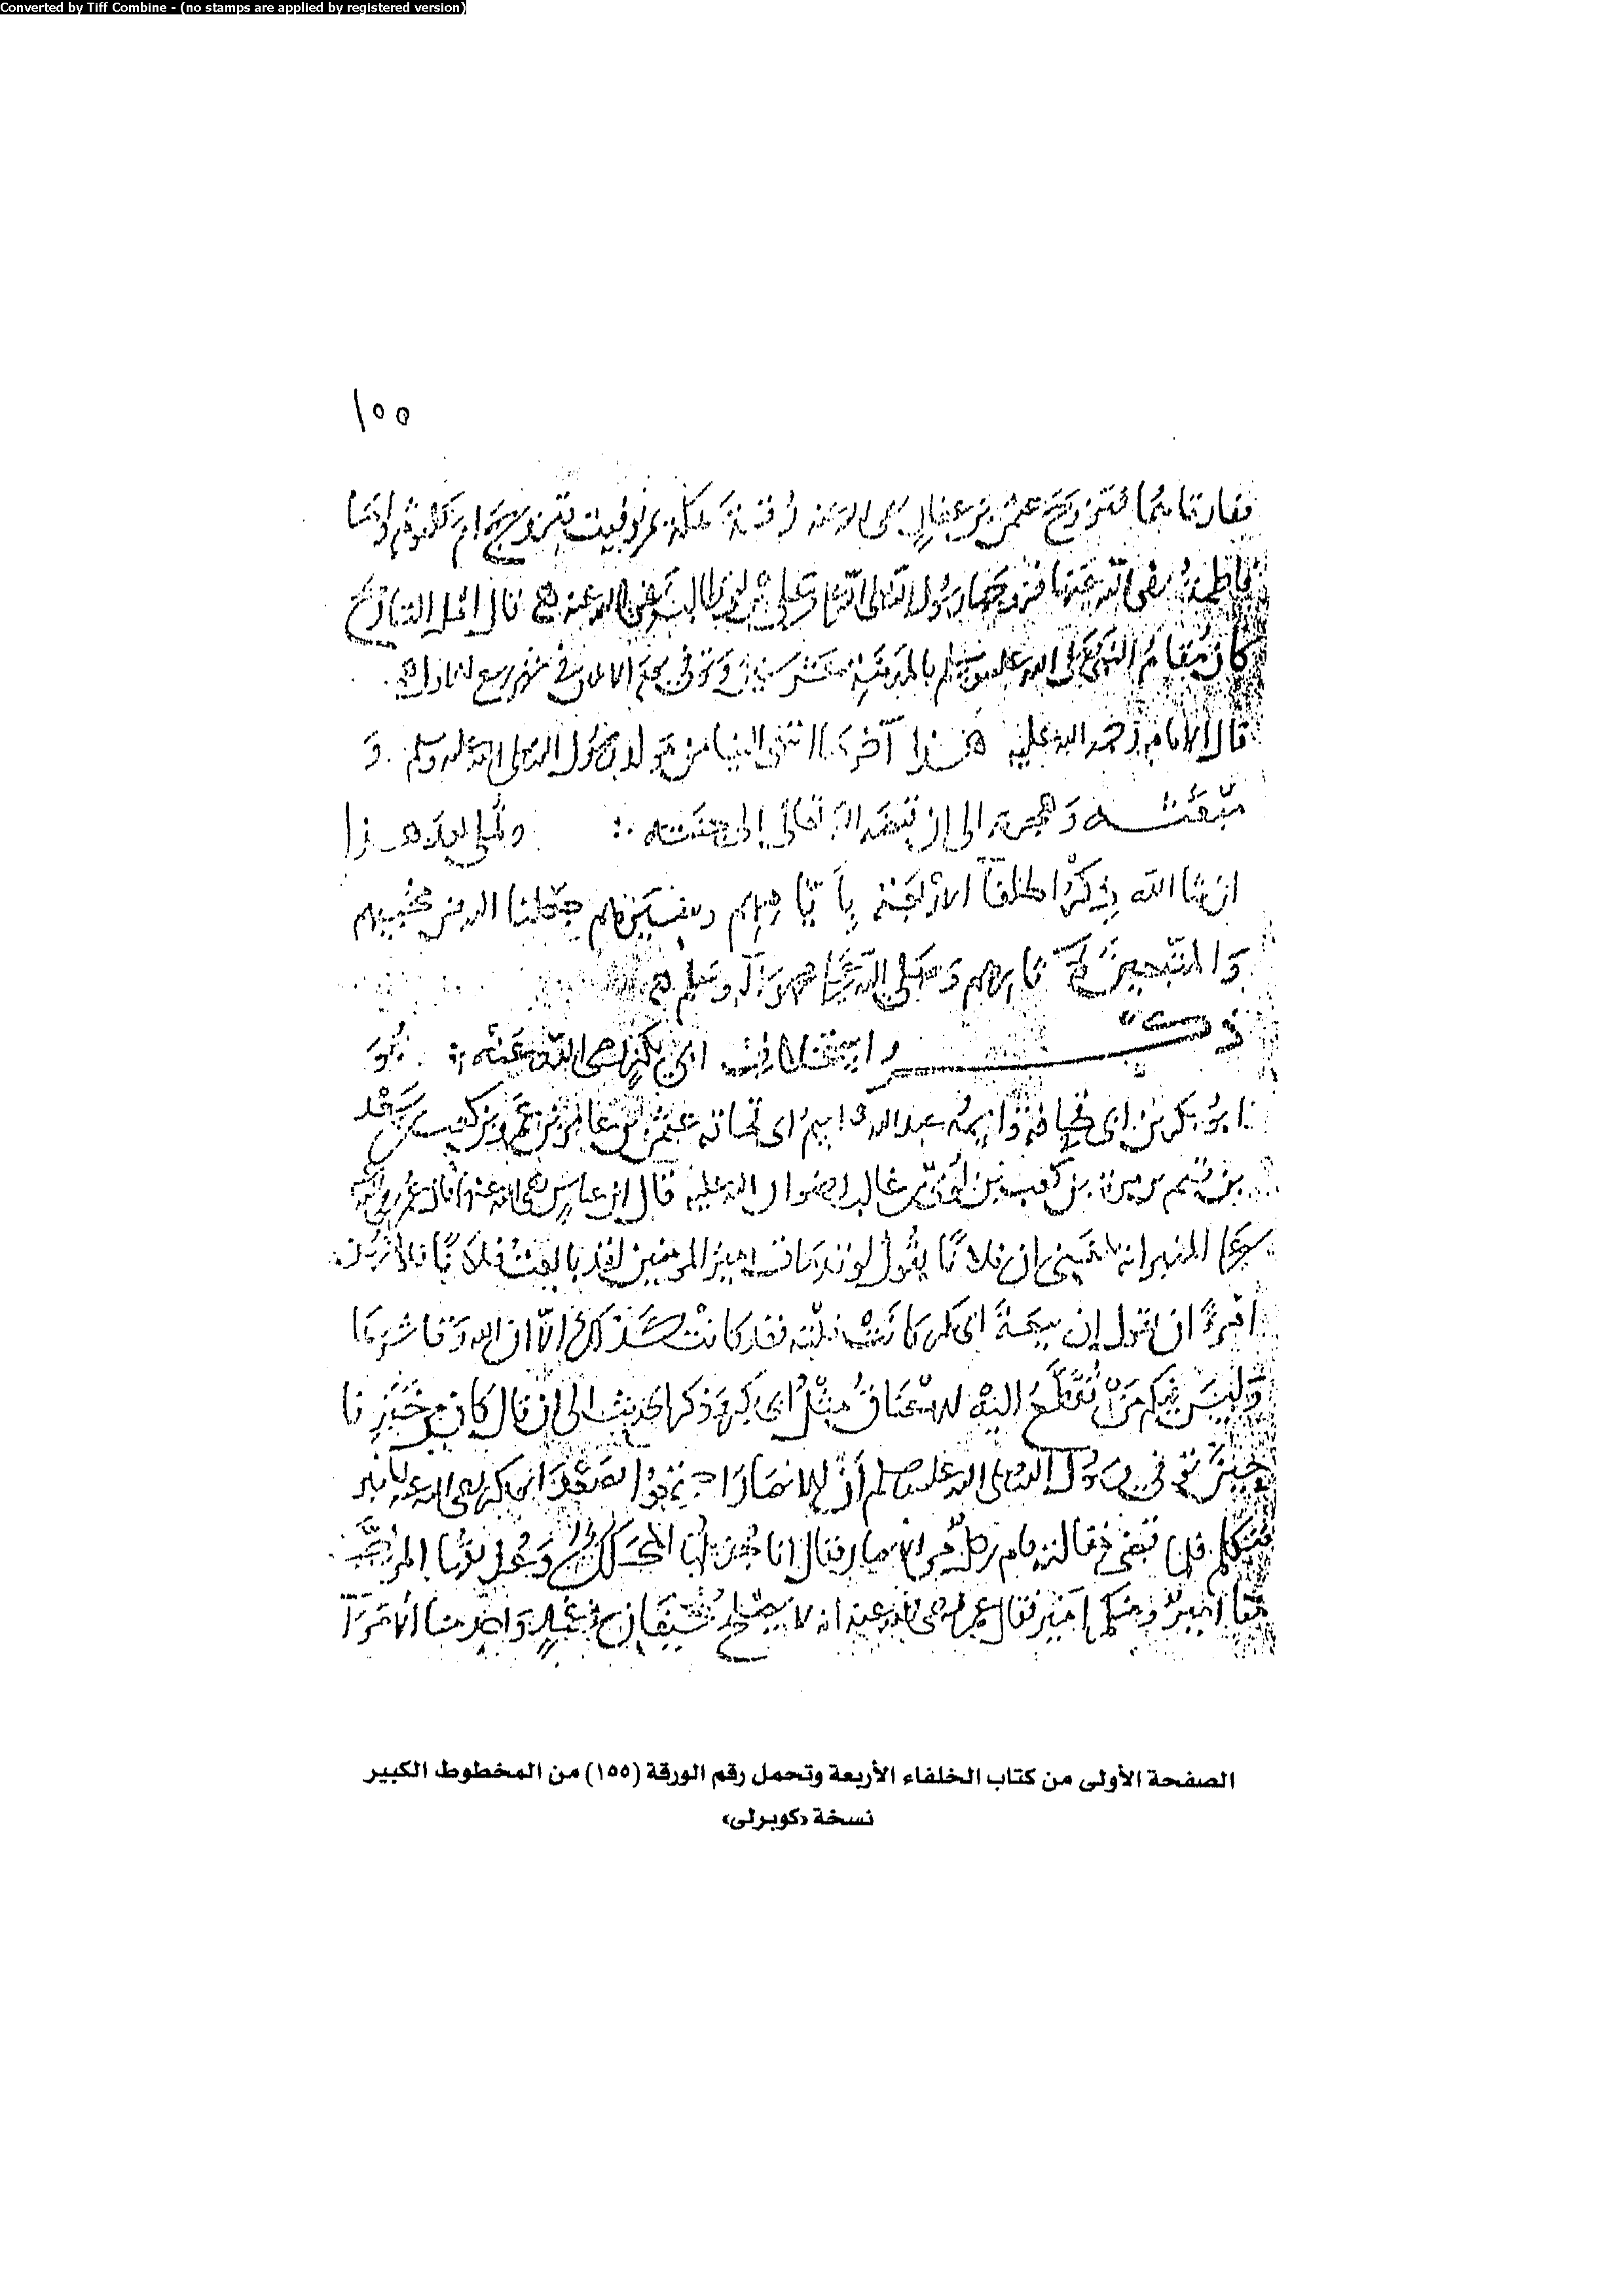 Converted by Tiff Combine - (no stamps are applied by registered version)
١٥٥
ففارقاهما فتزوج عثمن بن عفان رضى الله عنه رقية بمكة ثم توفيت فتزوج ام كلثوم واما
فاطمة رضى الله عنها فزوجها رسول الله صلى الله على بن ابى طالب رضى الله عنه قال اهل التاريخ
كان مقام النبى صلى الله عليه وسلم بالمدينة عشر سنين وتوفى يوم الاثنين فى شهر ربيع الاول
قال الامام رحمه الله عليه هذا آخر ما انتهى الينا من مولد رسول الله صلى الله عليه وسلم و
مبعثه وهجرته الى ان قبضه الله تعالى إلى جنته ويلى بعد هذا
ان شا الله ذكر الخلفا الاربعة بأيامهم جعلنا الله من محبيهم
والمتبعين آثارهم وصلى الله على محمد وآله وسلم
ذكر استخلاف ابي بكر رضى الله عنه هو
ابو بكر بن ابى قحافة واسمه عبد الله واسم ابى قحافة عثمن بن عامر بن عمرو بن كعب بن سعد
بن تيم بن مرة بن كعب بن لؤي بن غالب رضوان الله عليه قال ابن عباس رضى الله عنه قال عمر رضى الله
على المنبر انه بلغنى ان فلانا يقول لو قد مات امير المومنين لقد بايعت فلانا فلا
امرؤ ان يقول إن بيعة ابى بكر كانت فلتة فقد كانت كذلك الا ان الله وقا شرها
وليس فيكم من تقطع اليه الاعناق مثل ابى بكر وذكر الحديث الى ان قال كان من خبرنا
حين توفي رسول الله صلى الله عليه وسلم أن الانصار ابى بكر رضى الله عنه
فتكلم فلما قضى مقالته قام رجل من الانصار فقال انا جذيلها المحكك وعذيقها المرجب
منا امير ومنكم امير فقال عمر رضى الله عنه انه لا يصلح سيفان فى غمد واحد منا الأمرآ
الصفحة الأولى من كتاب الخلفاء الأربعة وتحمل رقم الورقة (١٥٥) من المخطوط الكبير
نسخة «كوبرلى»